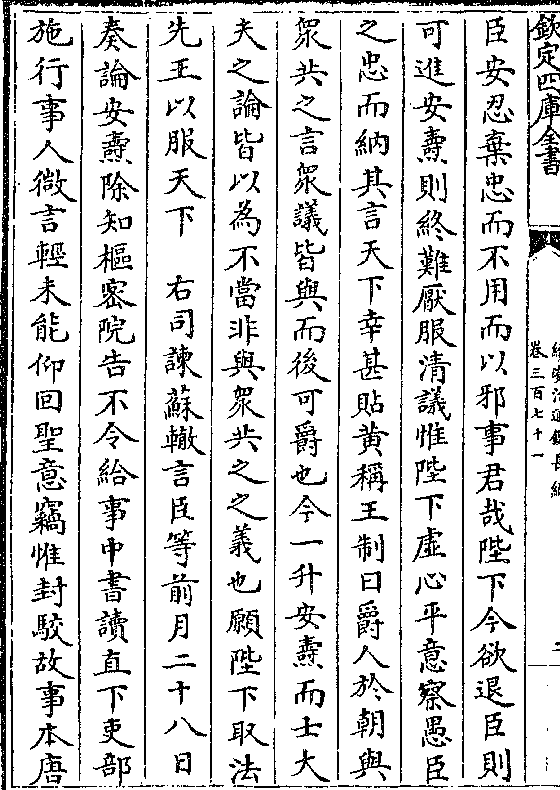 欽定四庫全書
續資治通鑑長編
卷三百七十一
臣安忍棄忠而不用而以邪事君哉陛下今欲退臣則
可進安燾則終難厭服清議惟陛下虛心平意察愚臣
之忠而納其言天下幸甚貼黄稱王制曰爵人於朝與
衆共之言衆議皆與而後可爵也今一升安燾而士大
夫之論皆以為不當非與衆共之之義也願陛下取法
先王以服天下　右司諫蘇轍言臣等前月二十八日
奏論安燾除知樞密院告不令給事中書讀直下吏部
施行事人微言輕未能仰回聖意竊惟封駮故事本唐